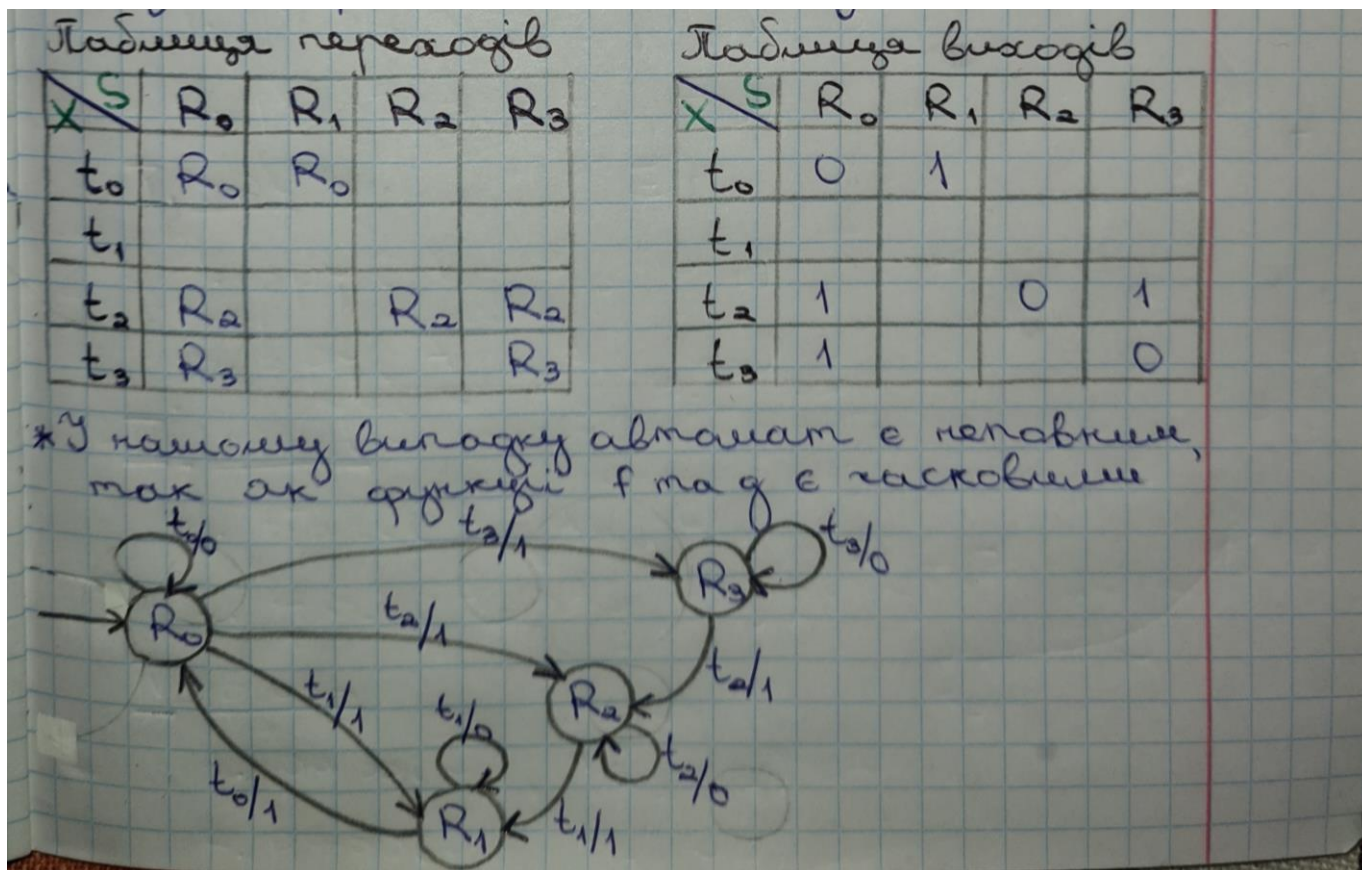 Таблиця переходів
X S R₀ R₁ R₂ R₃
t₀ R₀ R₀
t₁
t₂ R₂ R₂ R₂
t₃ R₃ R₃
Таблиця виходів
X S R₀ R₁ R₂ R₃
t₀ 0 1
t₁
t₂ 1 0 1
t₃ 1 0
*У нашому випадку автомат є неповним,
так як функції f та g є частковими
t₀/0
t₃/1
R₃
t₃/0
R₀
t₂/1
t₂/1
R₂
t₁/1
t₁/0
t₂/0
t₀/1
R₁
t₁/1